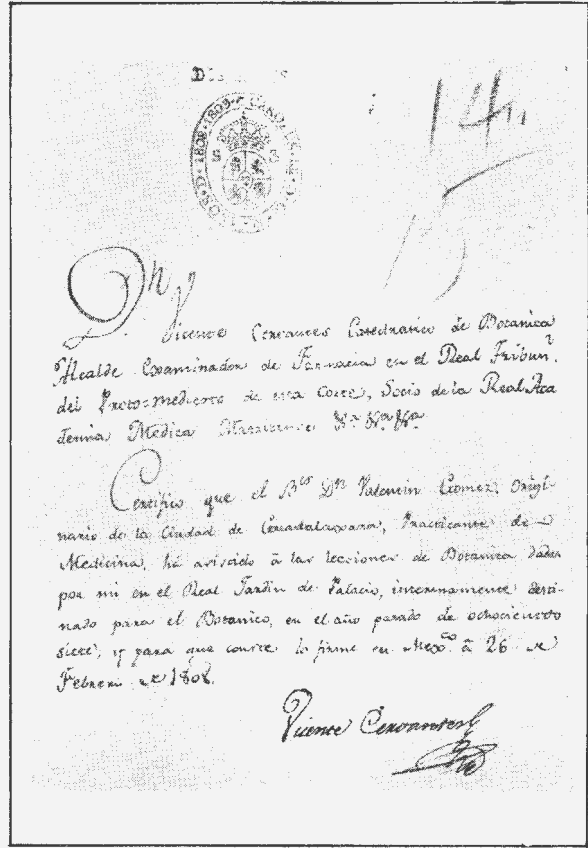 1808. 1809.
14
Dn Vicente Cervantes Catedratico de Botanica
Alcalde Examinador de Farmacia en el Real Tribunl.
del Proto-medicato de esta Corte, Socio de la Real Aca
demia Medica Matritense &a &a &a
Certifico que el Br Dn Valentin Gomez, Origi-
nario de la Ciudad de Guadalaxara, Practicante de
Medicina, há asistido á las lecciones de Botanica dadas
por mi en el Real Jardin de Palacio, interinamente desti-
nado para el Botanico, en el año pasado de ochociento
siete, y para que conste lo firme en Mexco. á 26 de
Febrero de 1808.
Vicente Cervantes